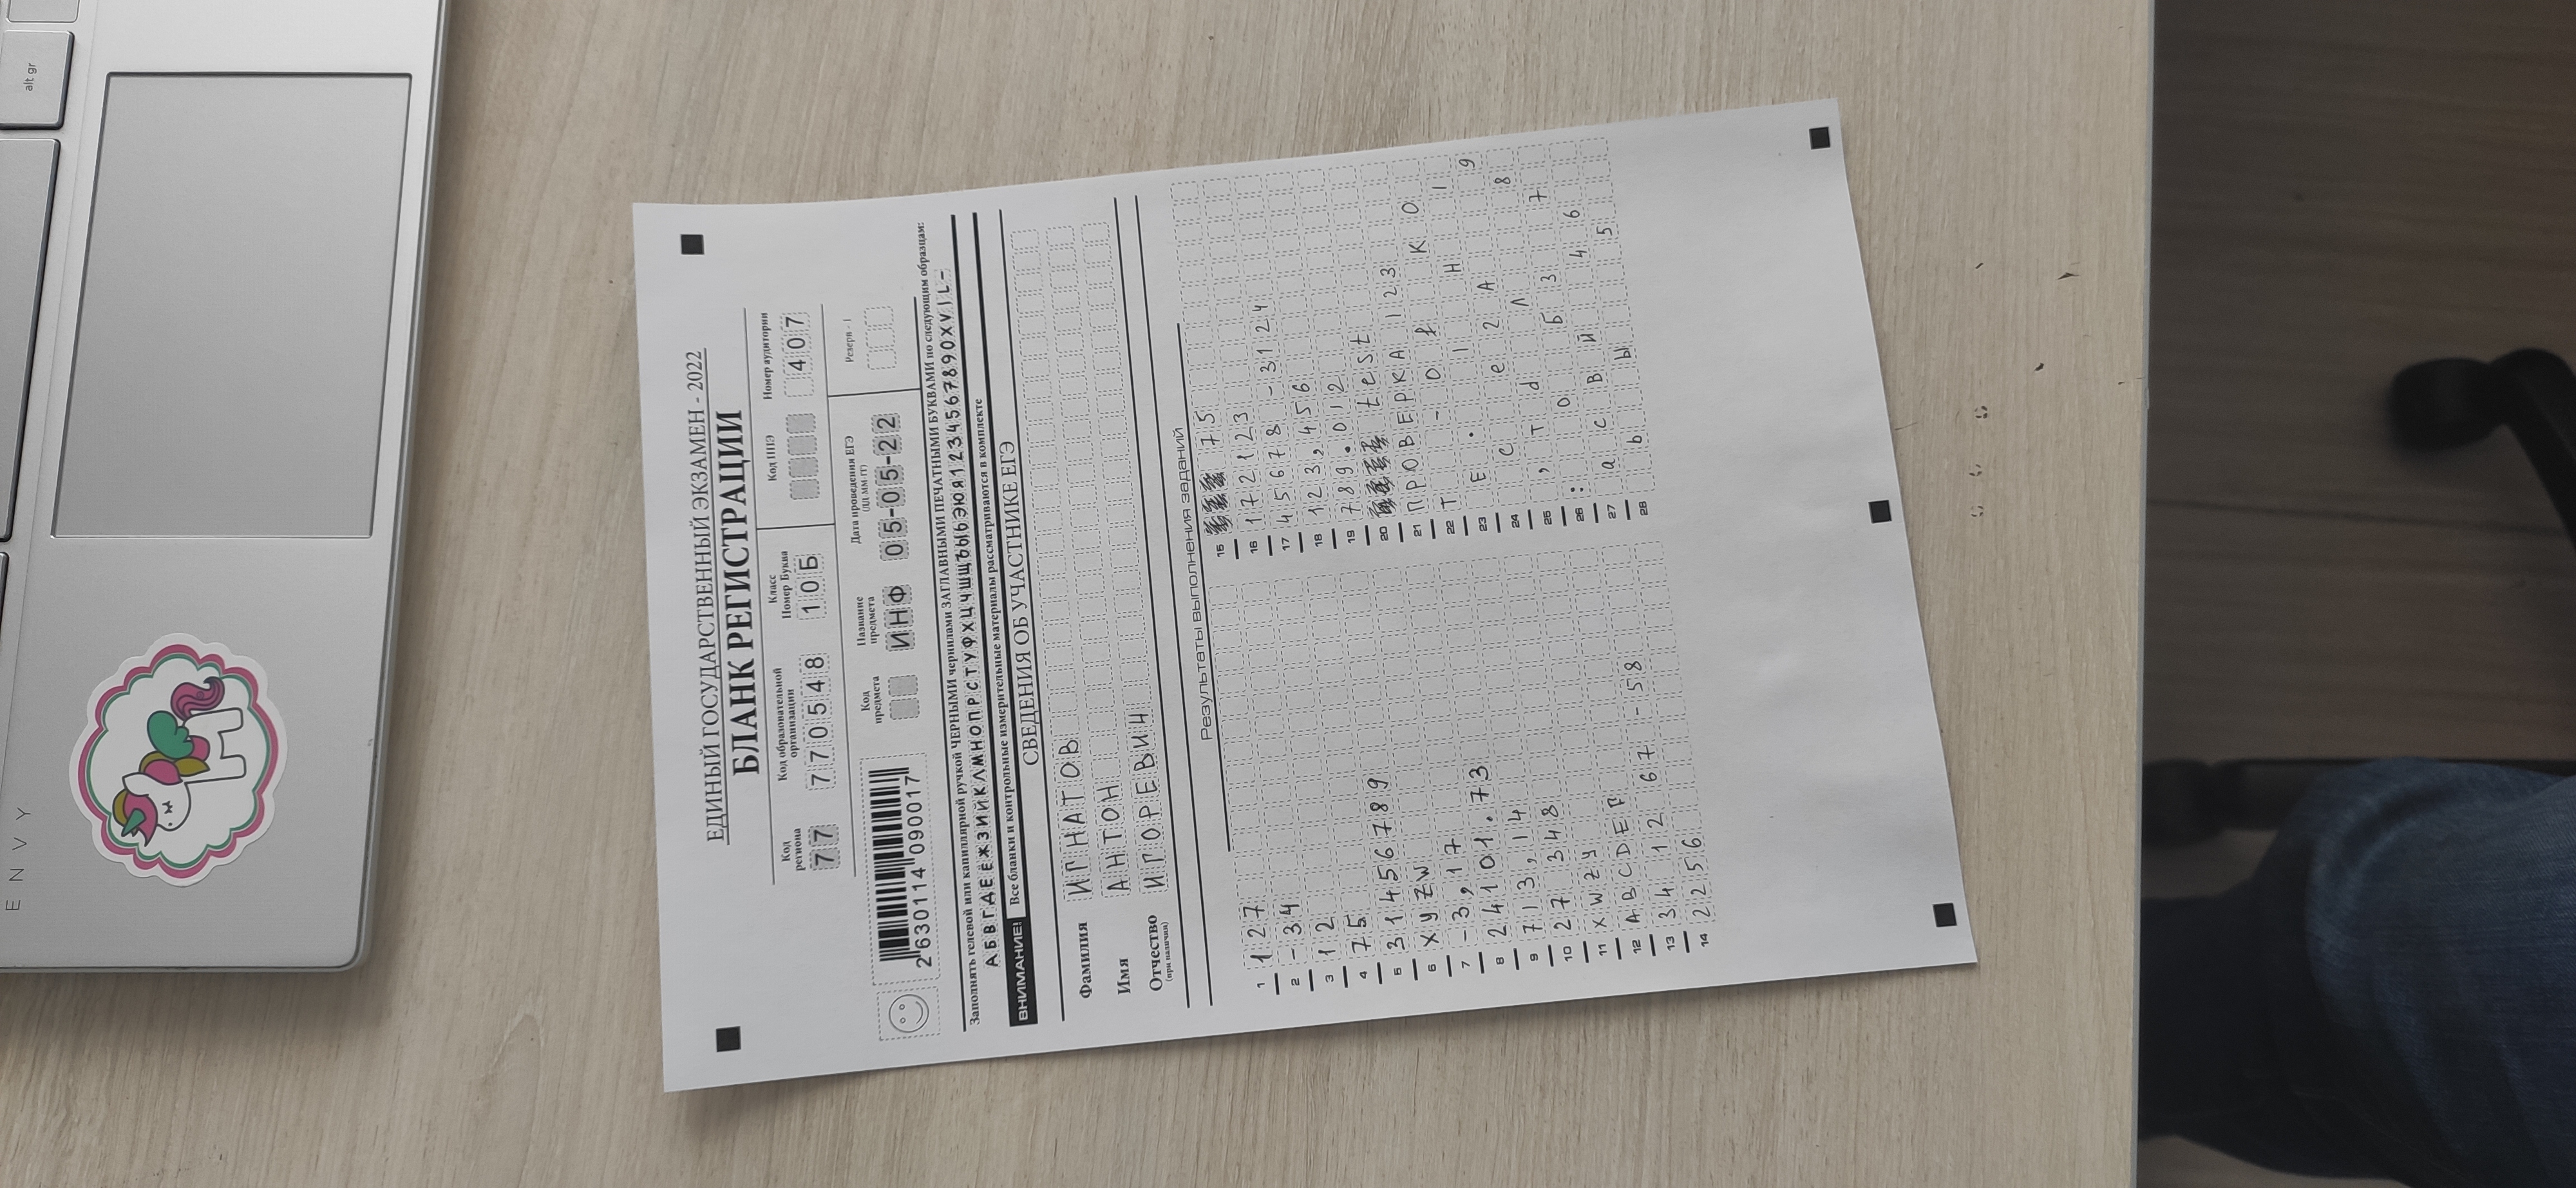 ЕДИНЫЙ ГОСУДАРСТВЕННЫЙ ЭКЗАМЕН - 2022
БЛАНК РЕГИСТРАЦИИ
Код региона
Код образовательной организации
Класс Номер Буква
Код ППЭ
Номер аудитории
77 770548 10Б 407
Код предмета
Название предмета
Дата проведения ЕГЭ (ДД ММ ГГ)
Резерв - 1
ИНФ 05-05-22
2630114090017
Заполнять гелевой или капиллярной ручкой ЧЕРНЫМИ чернилами ЗАГЛАВНЫМИ ПЕЧАТНЫМИ БУКВАМИ по следующим образцам:
АБВГДЕЁЖЗИЙКЛМНОПРСТУФХЦЧШЩЪЫЬЭЮЯ1234567890XVIL-
ВНИМАНИЕ! Все бланки и контрольные измерительные материалы рассматриваются в комплекте
СВЕДЕНИЯ ОБ УЧАСТНИКЕ ЕГЭ
Фамилия ИГНАТОВ
Имя АНТОН
Отчество ИГОРЕВИЧ
(при наличии)
Результаты выполнения заданий
1 127
2 -34
3 12
4 75
5 31456789
6 XYZW
7 -3,17
8 24101.73
9 713,14
10 27 348
11 XWZY
12 ABCDEF
13 34 12 67 -58
14 2256
15 75
16 172123
17 45678 -3124
18 123,456
19 789.012
20 test
21 ПРОВЕРКА 123
22 Т - 0 f К О
23 Е . 1 Н 1
24 С е 2 А 9
25 , Т d Л 8
26 : О Б 3 7
27 а с В Й 4 6
28 ь Ы 5
ENVY
alt gr